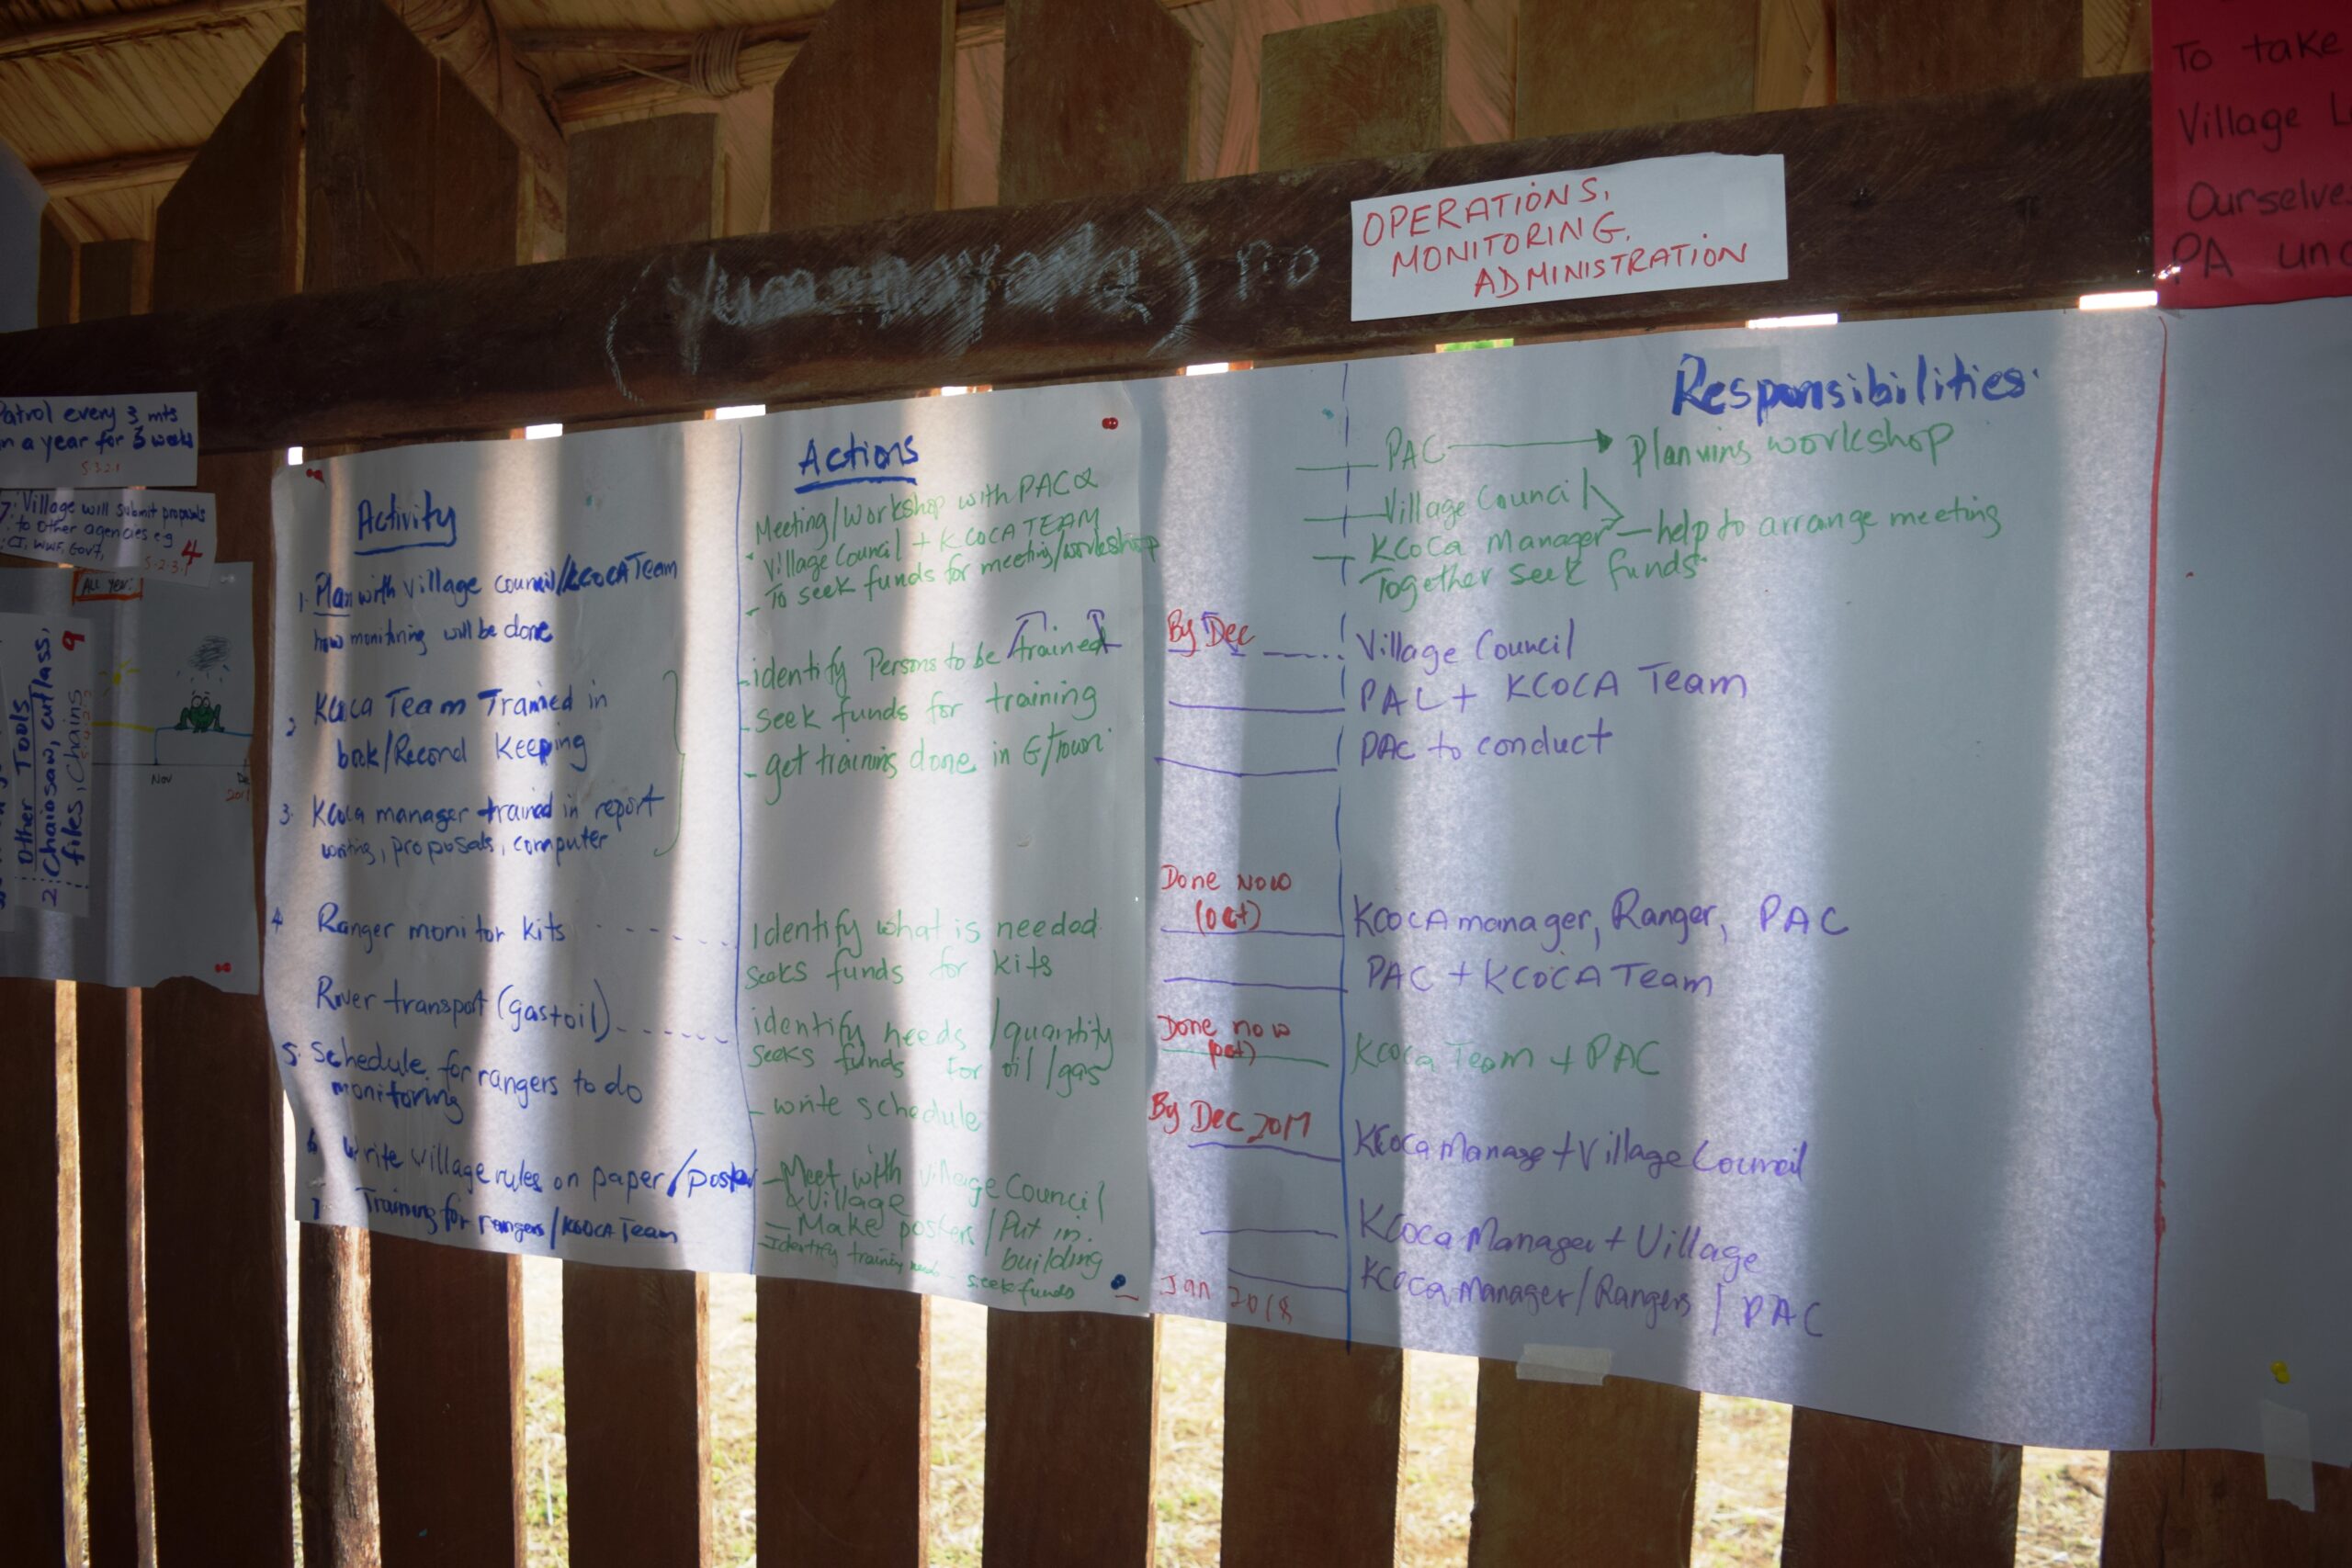 To take
Village L
Ourselve
PA und
OPERATIONS,
MONITORING,
ADMINISTRATION
Patrol every 3 mts
in a year for 3 weeks
5.3.2.1
7. Village will submit proposals
to other agencies eg
CI, WWF, Govt,
4
5.2.3.1
ALL YEAR
Nov
Other Tools
2. Chainsaw, cutlass,
files, Chains
9
Activity
1. Plan with Village council/KCOCA Team
how monitoring will be done
2 KCoca Team Trained in
book/Record Keeping
3. KCoca manager trained in report
writing, proposals, computer
4 Ranger monitor kits
River transport (gas+oil)
5. Schedule for rangers to do
monitoring
6 Write village rules on paper/poster
7 Training for rangers/KCOCA Team
Actions
Meeting/Workshop with PAC &
Village Council + KCOCA TEAM
- To seek funds for meeting/workshop
- identify Persons to be trained
- Seek funds for training
- get training done in G/Town
Identify what is needed
seeks funds for kits
identify needs/quantity
seeks funds for oil/gas
- write schedule
- Meet with Village Council
& Village
- Make posters/Put in
building
- Identify training needs - seek funds
By Dec
Done now
(oct)
Done now
(oct)
By Dec 2017
Jan 2018
Responsibilities
PAC → Planning workshop
Village Council
KCoCa Manager - help to arrange meeting
Together seek funds
Village Council
PAC + KCOCA Team
PAC to conduct
KCOCA manager, Ranger, PAC
PAC + KCOCA Team
KCoca Team + PAC
KCoca Manage + Village Council
KCoca Manager + Village
KCoca Manager/Rangers/PAC